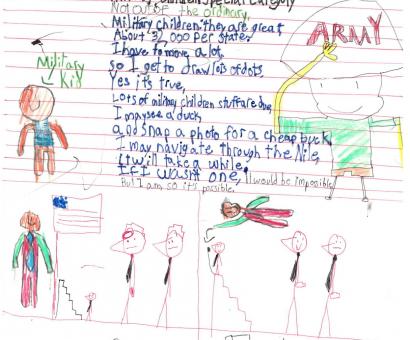 Children Special Category
Not out of the ordinary,
Military children, they are great
About 37,000 per state.
I have to move a lot,
so I get to draw lots of dots.
Yes it's true,
Lots of military children stuff are due,
I may see a duck
and snap a photo for a cheap buck
I may navigate through the Nile,
it will take a while,
If I wasn't one, it would be impossible
But I am so it's possible.
Military
Kid
ARMY